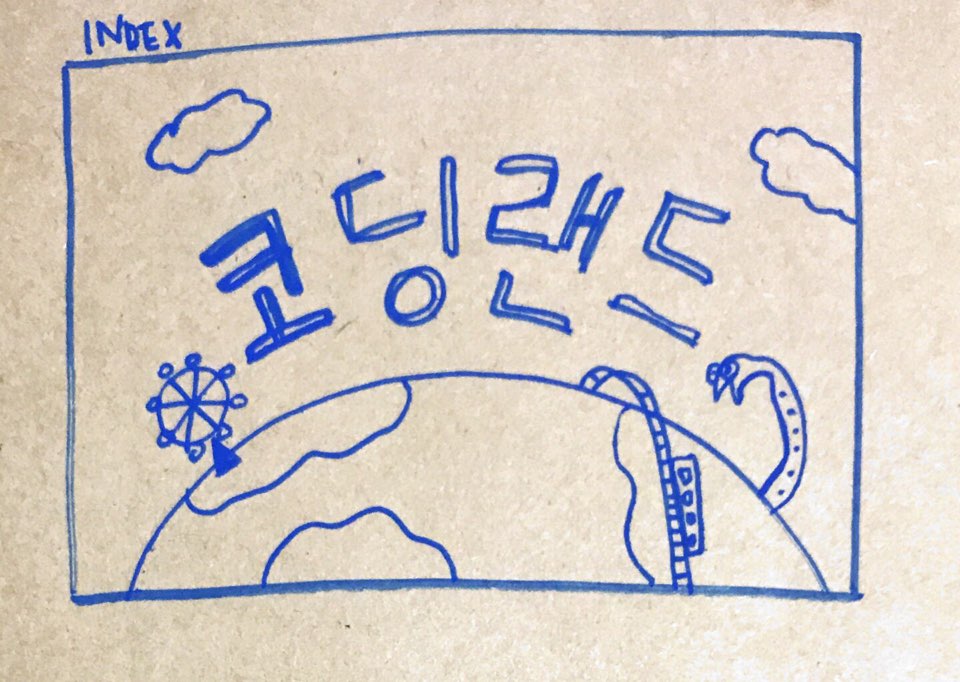 INDEX
코딩랜드